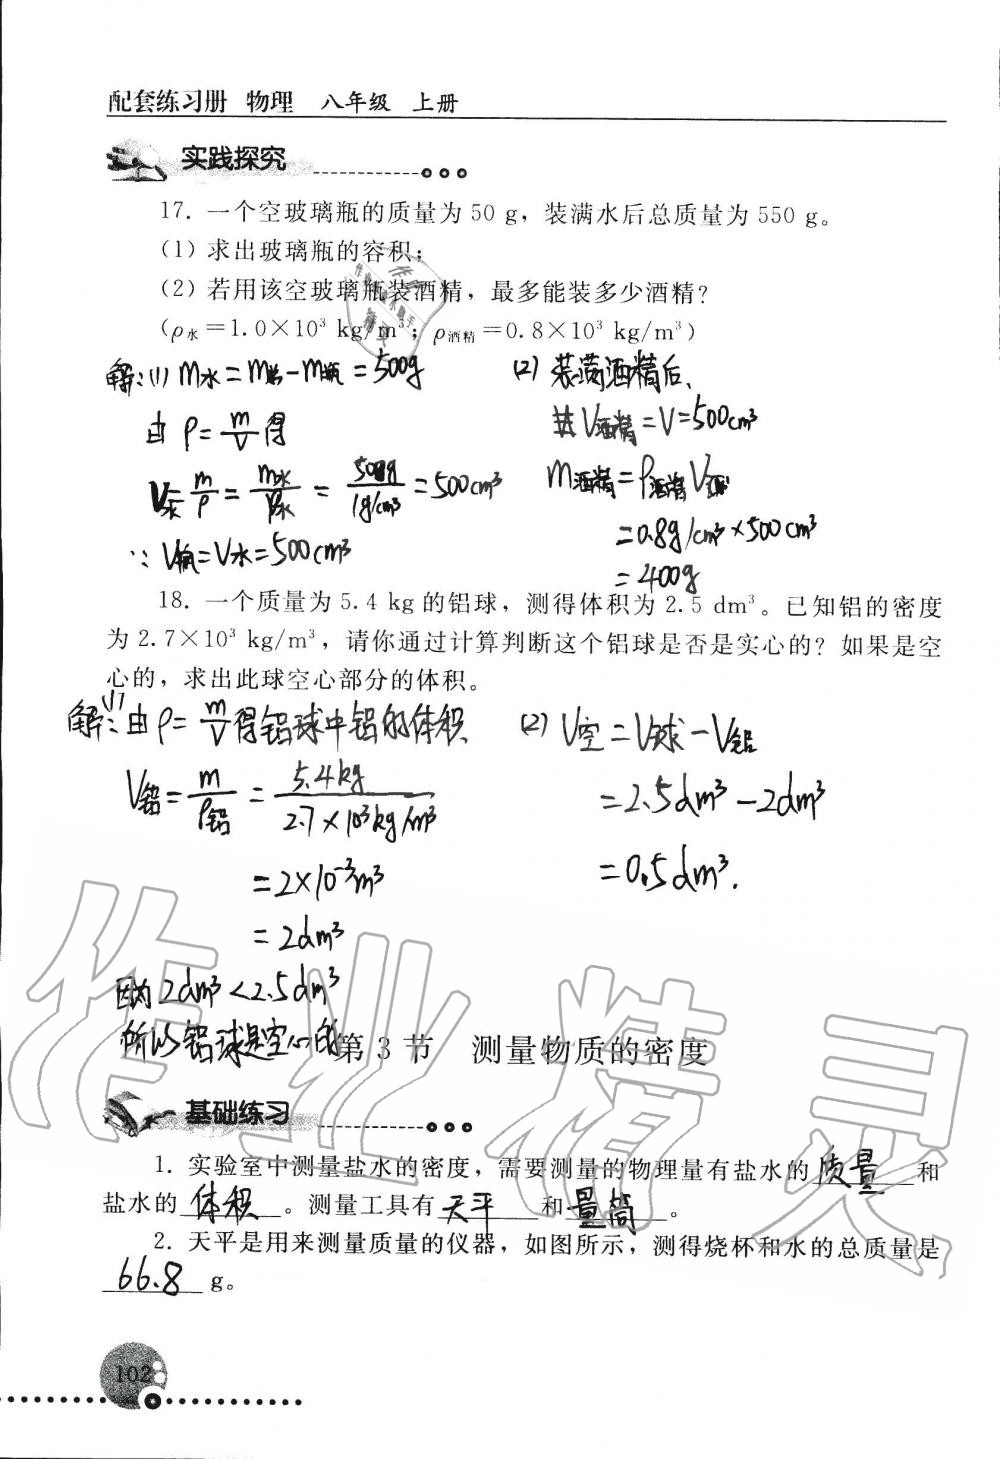 配套练习册 物理 八年级 上册
实践探究
17. 一个空玻璃瓶的质量为 50 g，装满水后总质量为 550 g。
(1) 求出玻璃瓶的容积；
(2) 若用该空玻璃瓶装酒精，最多能装多少酒精？
(ρ水=1.0×10³ kg/m³；ρ酒精=0.8×10³ kg/m³)
解：(1) m水=m总-m瓶=500g
由 ρ=m/V 得
V水=m/ρ=m水/ρ水=500g/1g/cm³=500cm³
∵V瓶=V水=500cm³
(2) 装满酒精后、
V酒精=V=500cm³
m酒精=ρ酒精V酒精
=0.8g/cm³×500cm³
=400g
18. 一个质量为 5.4 kg 的铝球，测得体积为 2.5 dm³。已知铝的密度
为 2.7×10³ kg/m³，请你通过计算判断这个铝球是否是实心的？如果是空
心的，求出此球空心部分的体积。
解：(1) 由 ρ=m/V 得铝球中铝的体积
V铝=m/ρ铝=5.4kg/2.7×10³kg/m³
=2×10⁻³m³
=2dm³
因为 2dm³<2.5dm³
所以铝球是空心的
(2) V空=V球-V铝
=2.5dm³-2dm³
=0.5dm³.
第 3 节 测量物质的密度
基础练习
1. 实验室中测量盐水的密度，需要测量的物理量有盐水的 质量 和
盐水的 体积 。测量工具有 天平 和 量筒 。
2. 天平是用来测量质量的仪器，如图所示，测得烧杯和水的总质量是
66.8 g。
102
作业精灵